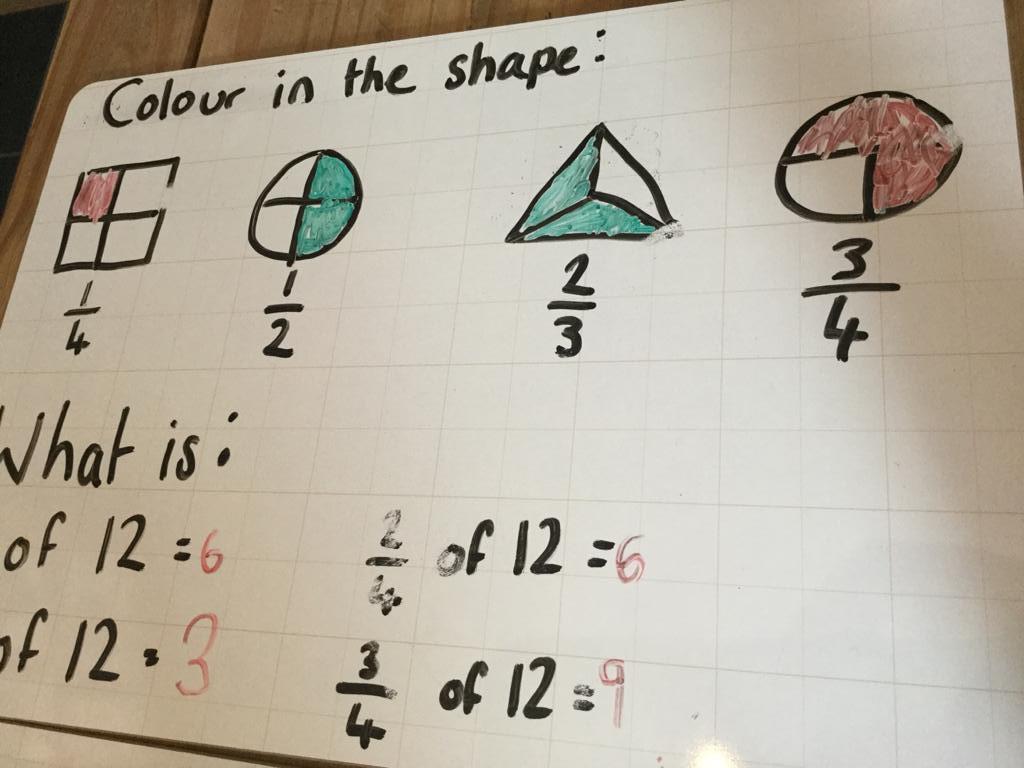 Colour in the shape:
1/4 1/2 2/3 3/4
What is:
of 12 = 6 2/4 of 12 = 6
of 12 = 3 3/4 of 12 = 9